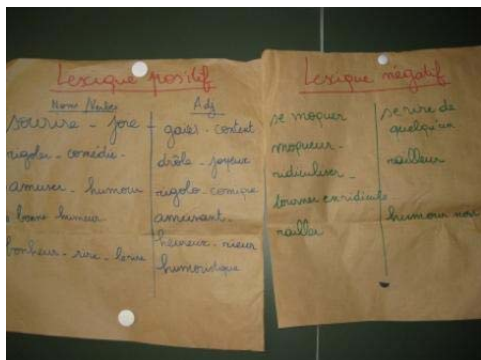 Lexique positif
Noms Verbes
sourire - joie -
rigoler - comédie -
amuser - humour
bonne humeur
bonheur - rire - le rire
Adj
gaies - content
drôle - joyeux
rigolo - comique
amusant -
heureux - rieur
humoristique
Lexique négatif
se moquer
moqueur -
ridiculiser -
tourner en ridicule
railler
se rire de
quelqu'un
railleur
humour noir